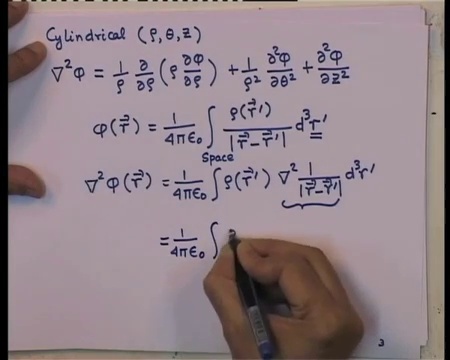 Cylindrical (ρ, θ, z)
∇²φ = 1/ρ ∂/∂ρ (ρ ∂φ/∂ρ) + 1/ρ² ∂²φ/∂θ² + ∂²φ/∂z²
φ(r⃗) = 1/4πε₀ ∫ ρ(r⃗′)/|r⃗-r⃗′| d³r′
Space
∇²φ(r⃗) = 1/4πε₀ ∫ ρ(r⃗′) ∇² 1/|r⃗-r⃗′| d³r′
= 1/4πε₀ ∫
3